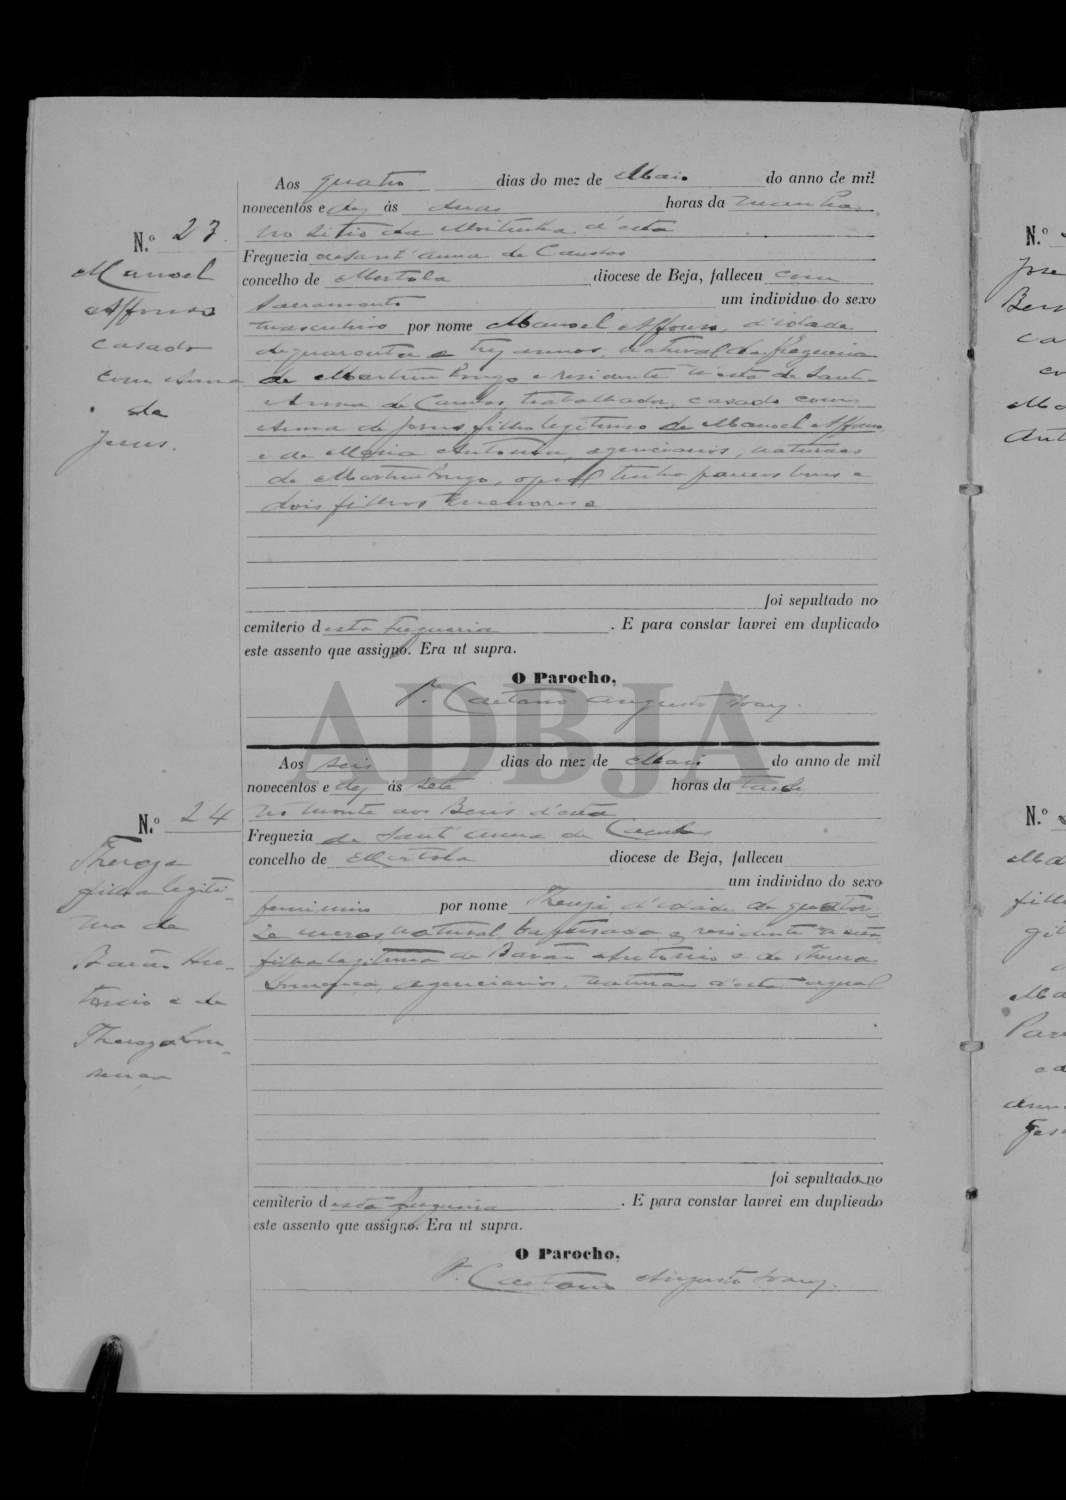 Aos quatro dias do mez de Maio do anno de mil
novecentos e dez ás duas horas da manhã
no sitio da d'esta
Freguezia de Sant'Anna de Cambas
concelho de Mertola diocese de Beja, falleceu com
sacramento um individuo do sexo
masculino por nome Manoel Affonso, d'idade
de quarenta e trez annos, natural da freguezia
de Martim Longo e residente n'esta de Sant-
Anna de Cambas, trabalhador, casado com
Anna de Jesus filho legitimo de Manoel Affonso
e de Maria Antonia, agenciarios, naturaes
de Martim Longo, o qual tinha poucos bens e
dois filhos menores e
foi sepultado no
cemiterio d esta freguezia . E para constar lavrei em duplicado
este assento que assigno. Era ut supra.
O Parocho,
P. Caetano Augusto
N.º 23
Manoel
Affonso
casado
com Anna
de
Jesus.
ADBJA
Aos seis dias do mez de Maio do anno de mil
novecentos e dez ás sete horas da tarde
no monte dos Bens d'esta
Freguezia de Sant'Anna de Cambas
concelho de Mertola diocese de Beja, falleceu
um individuo do sexo
feminino por nome Thereza d'idade de quator-
ze mezes natural, baptisada e residente n'esta
filha legitima de Barão Antonio e de Thereza
agenciarios, naturaes d'esta a qual
foi sepultada no
cemiterio d esta freguezia . E para constar lavrei em duplicado
este assento que assigno. Era ut supra.
O Parocho,
P. Caetano Augusto
N.º 24
Thereza
filha legiti-
ma de
Barão An-
tonio e de
Thereza
N.º
Jose
N.º